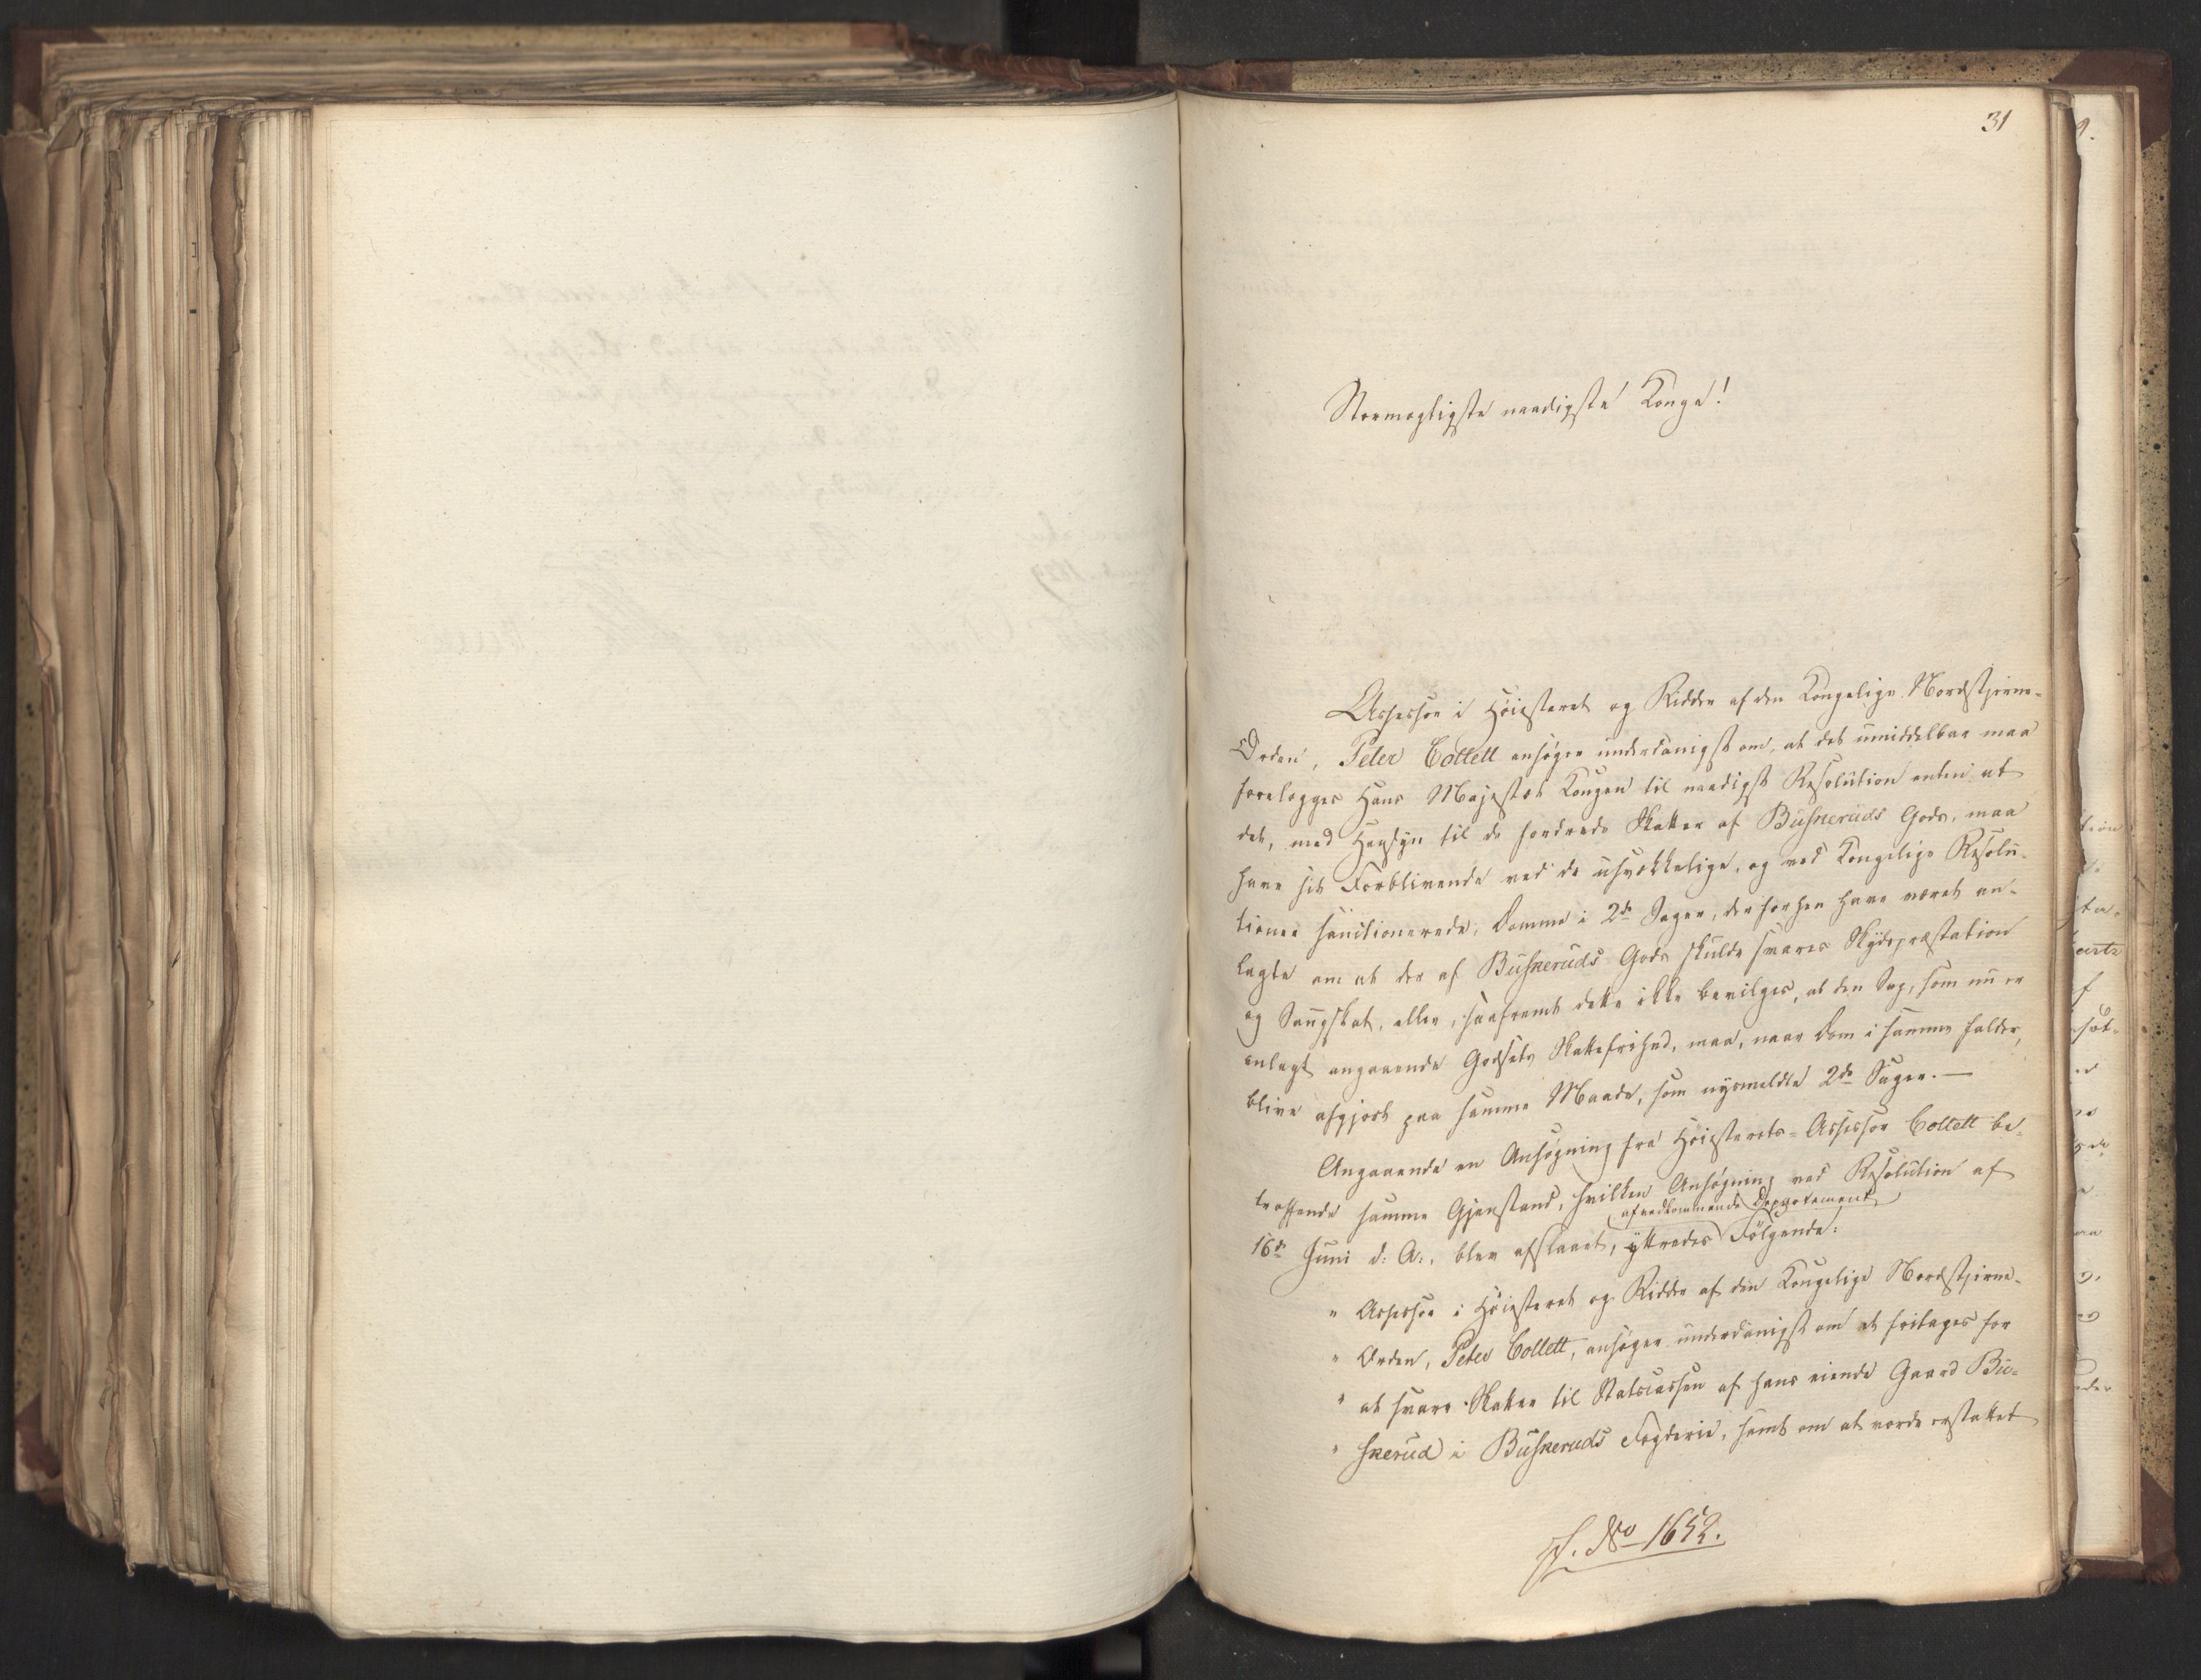 31
Stormægtigste naadigste Konge!
Assessor i Höiesteret og Ridder af den Kongelige Nordstjerne-
Orden, Peter Collett ansøger underdanigst om, at det umiddelbar maa
forelægges Hans Majestæt Kongen til naadigst Resolution enten at
det, med Hensyn til de fordrede Skatter af Buskeruds Gods, maa
have sit Forblivende ved de usvækkelige, og ved Kongelige Resolu-
tioner sanctionerede, Domme i 2de Sager, der forhen have været an-
lagte om at der af Buskeruds Gods skulde svares Skydspræstation
og Saugskat, eller, saafremt dette ikke bevilges, at den Sag, som nu er
anlagt angaaende Godsets Skattefrihed, maa, naar Dom i samme falder,
blive afgjort paa samme Maade, som nysmeldte 2de Sager. —
Angaaende en Ansøgning fra Höiesterets-Assessor Collett be-
træffende samme Gjenstand, hvilken Ansøgning ved Resolution af
af vedkommende Departement
16de Juni d: A:, blev afslaaet, yttredes Følgende:
" Assessor i Höiesteret og Ridder af den Kongelige Nordstjerne-
" Orden, Peter Collett, ansøger underdanigst om at fritages for
" at svare Skatter til Statscassen af hans eiende Gaard Bu-
" skerud i Buskeruds Fogderie, samt om at vorde erstattet
No 1652.